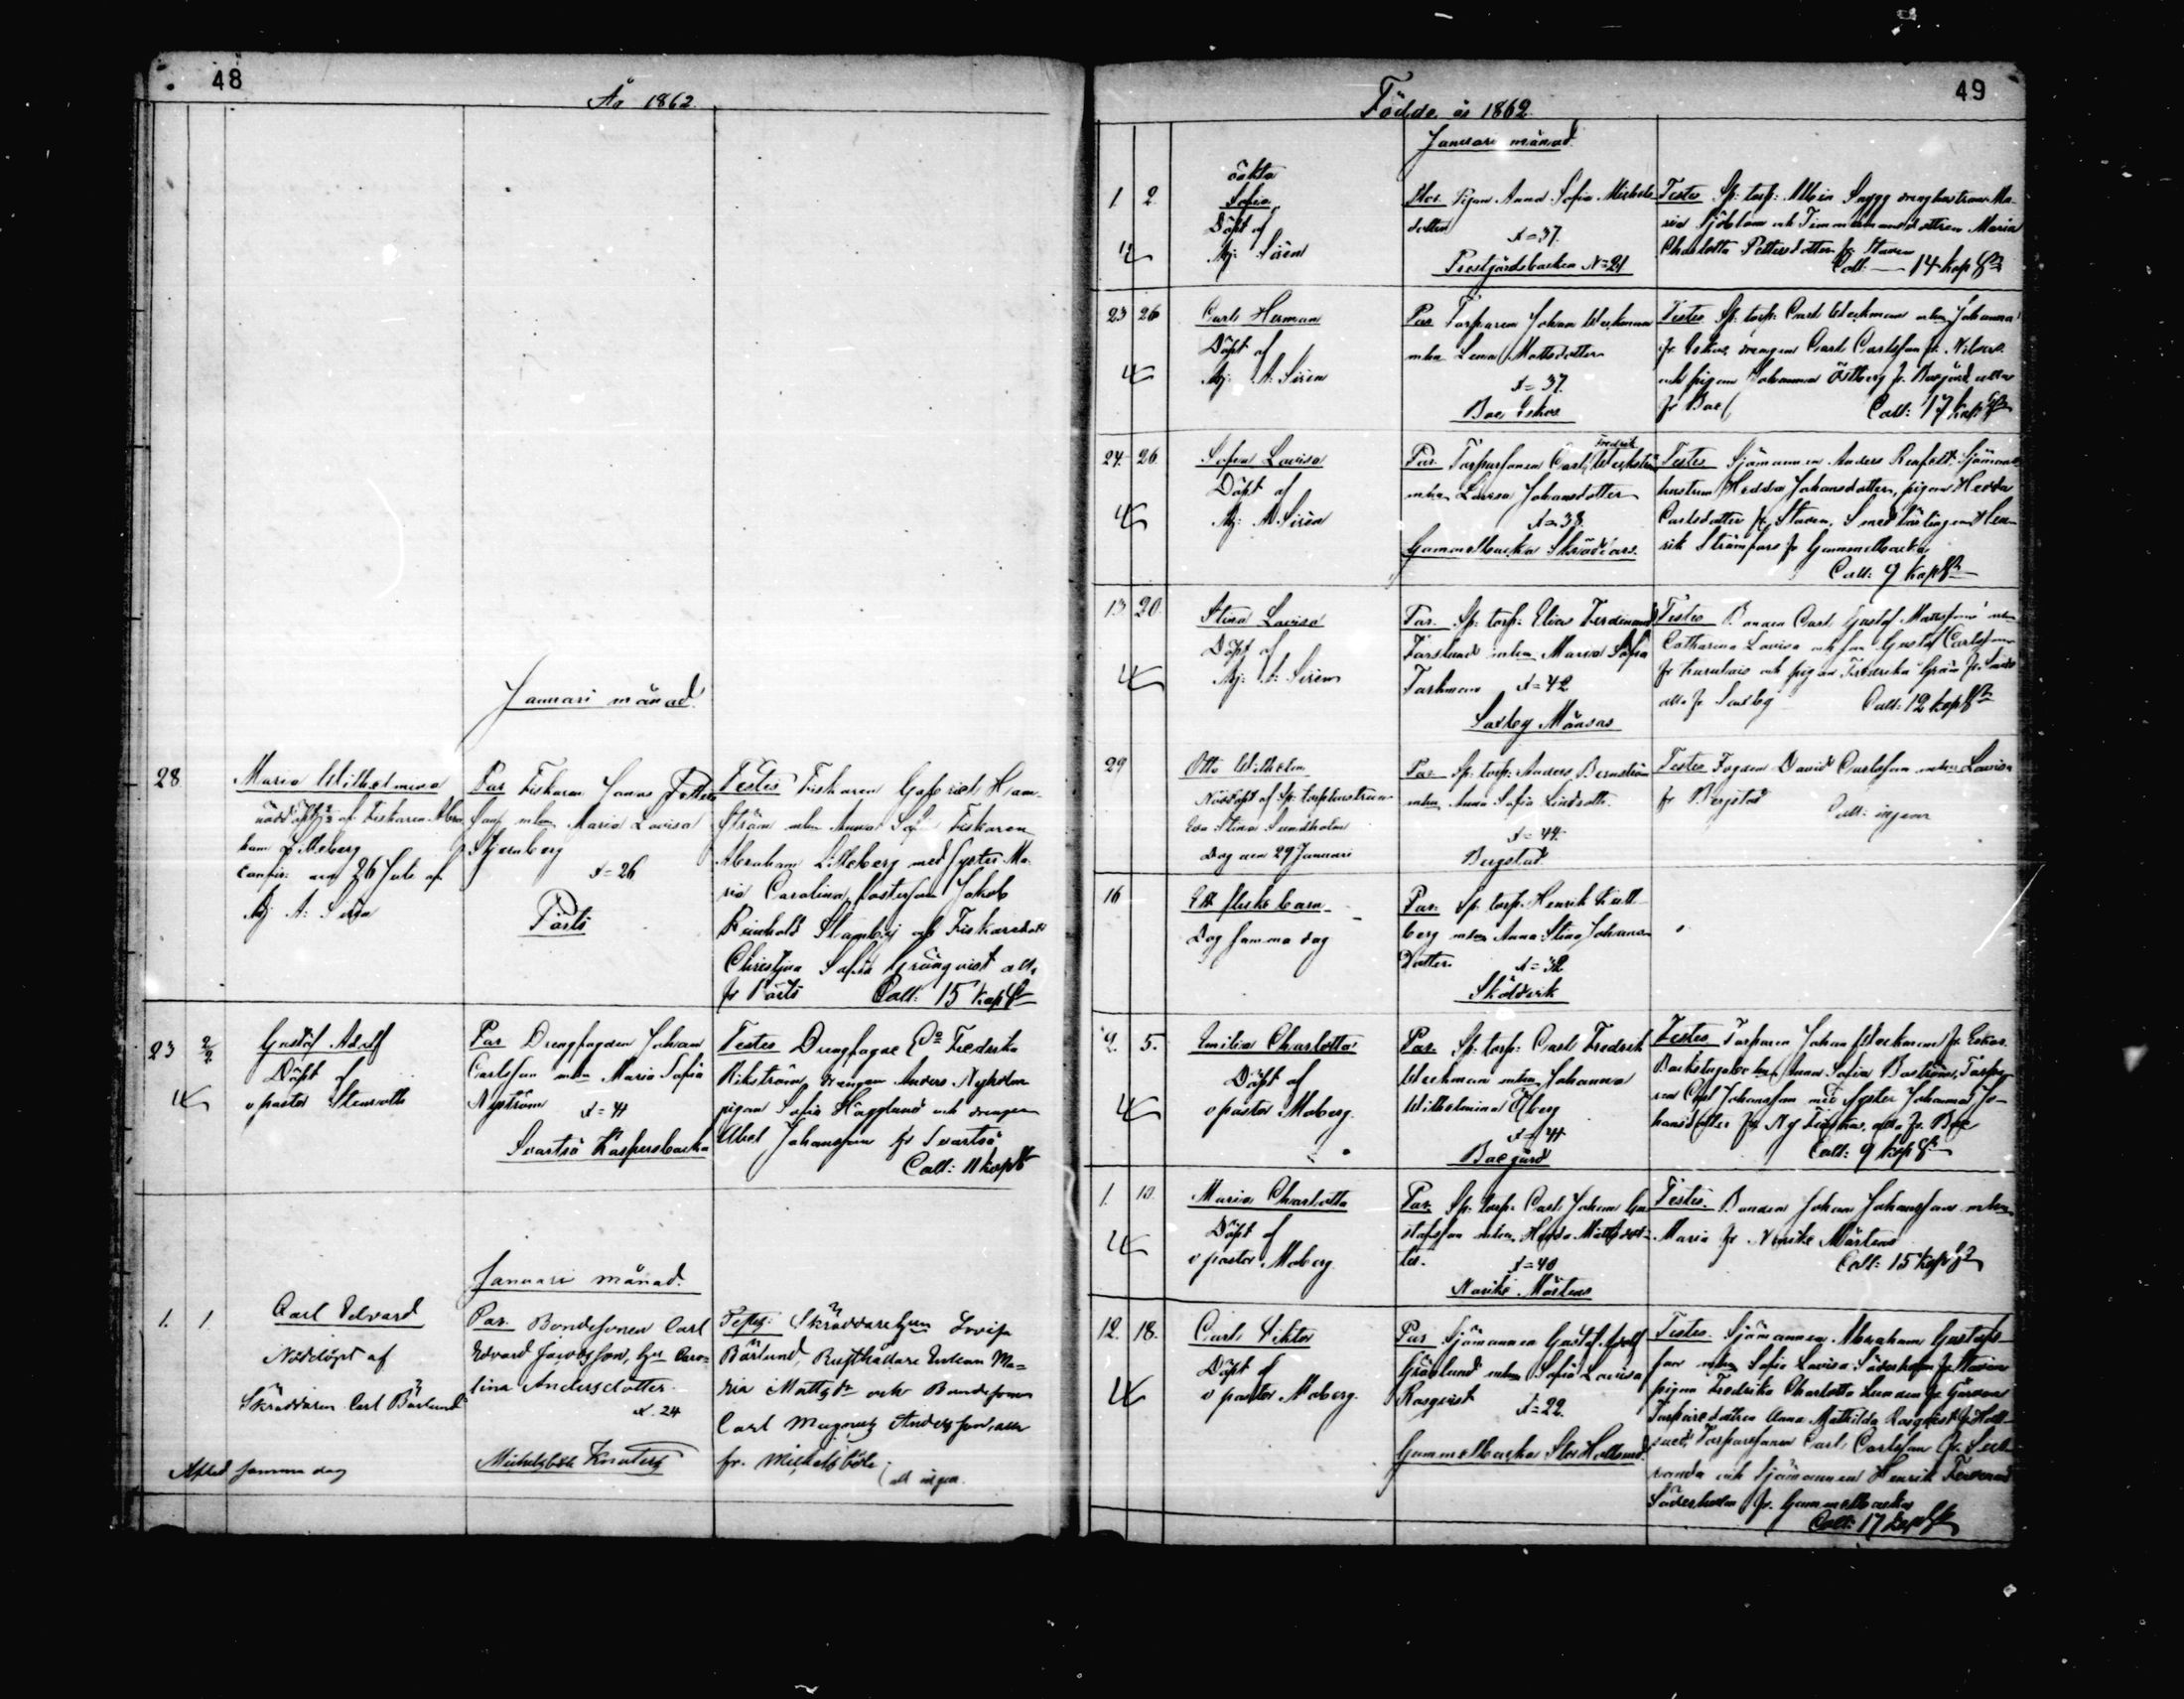 48
År 1862.
Januari månad.
28
Maria Wilhelmina
nöddöpt af Fiskaren Abra
ham Lilleberg
confir: den 26 Juli af
Mj A: Sirén
Par Fiskaren Jonas Petters
son mhu Maria Lovisa
Stjernberg
x=26
Pörtö
Testes Fiskaren Gabriel Hjam-
ström mhu Anna Sofia Fiskaren
Abraham Lilleberg med syster Ma-
ria Carolina, fosterson Jakob
Reinhold
Christina Sofia Grönqvist alla
fr Pörtö Coll: 15 kop Sr
23 2/2
Gustaf Adolf
Döpt af
v pastor Stenroth
Par Drengfogden Johan
Carlsson mhu Maria Sofia
Nyström x=41
Svartsö Kaspersbacka
Testes Drengfogde Fredrika
Wikström, drengen Anders Nyholm
pigan Sofia Hägglund och drengen
Abel Johansson fr Svartsö
Coll: 11 kop Sr
Januari månad.
1. 1.
Carl Edvard
Nöddöpt af
Skräddaren Carl Bärlund
Afled samma dag
Par. Bondesonen Carl
Edvard Jacobsson, hu Caro-
lina Andersdotter.
x. 24
Michelsböle Knuters
Testes: Lovisa
Bärlund, Rusthållare Enkan Ma-
ria Mattsdr och Bondesonen
Carl Magnus Andersson, alla
fr. Mickelsböle
Coll ingen.
49
Födde år 1862.
Januari månad.
1 2
oäkta
Sofia
Döpt af
Mj. Sirén
Mor. Pigan Anna Sofia Michels-
dotter
x=37.
Prestgårdsbacken N=21
Testes Sp: torp: Albin Snygg drenghustrun Ma-
ria Sjöblom och Timmermansdottren Maria
Charlotta Pettersdotter fr Staden
Coll: — 14 kop Sr
23 26
Carl Herman
Döpt af
Mj: A: Sirén
Par Torparen Johan Weckman
mhu Lena Mattsdotter
x=37.
Boe Eskos
Testes Sp: torp: Carl Weckman mhu Johanna
fr Eskos, drengen Carl Carlsson fr. Nibars
och pigan Johanna Östberg fr. Boegård alla
fr Boe Coll: 17 kop Sr
24. 26.
Sofia Lovisa
Döpt af
Mj: A Sirén
Par. Torparsonen Carl Fredrik Weckström
mhu Lovisa Johansdotter
x=38.
Gammelbacka Skräddars.
Testes Sjömannen Anders Renfelt, Sjömans
hustrun Hedda Johansdotter, pigan Hedda
Carlsdotter fr. Staden, Smedlärlingen Hen-
rik Strömfors fr Gammelbacka
Coll: 9 kop Sr
13 20.
Stina Lovisa
Döpt af
Mj: A: Sirén
Par. Sp: torp: Elias Ferdinand
Forslund mhu Maria Sofia
Forsman x=42
Saxby Månsas
Testes Bonden Carl Gustaf Mattsson mhu
Catharina Lovisa och son Gustaf Carlsson
fr och pigan Fredrika Grön fr.
alla fr Saxby Coll: 12 kop Sr
29
Otto Wilhelm
Nöddöpt af Sp: torphustrun
Eva Stina Sundholm
Dog den 29 Januari
Par Sp: torp: Anders Bernström
mhu Anna Sofia Lindroth
x=44.
Bergstad
Testes Fogden David Carlsson mhu Lovisa
fr Bergstad
Coll: ingen
16
Ett flickebarn
Dog samma dag
Par. Sp. torp. Henrik Kull-
berg mhu Anna Stina Johans-
dotter. x=32
Sköldvik
2. 5.
Emilia Charlotta
Döpt af
v pastor Moberg.
Par. Sp: torp: Carl Fredrik
Weckman mhu Johanna
Wilhelmina Öberg
x=44
Boe gård
Testes Torparen Johan Weckman fr Eskos.
Anna Sofia Boström, Torpa-
ren Carl Johansson med syster Johanna Jo-
hansdotter fr. alla fr. Boe
Coll: 9 kop Sr
1. 12.
Maria Charlotta
Döpt af
v pastor Moberg
Par. Sp: torp: Carl Johan Gu-
stafsson mhu Hedda Mattsdot-
ter. x=40
Norike Mårtens
Testes. Bonden Johan Johansson mhu
Maria fr Norike Mårtens
Coll: 15 kop Sr
12. 18.
Carl Viktor
Döpt af
v pastor Moberg.
Par Sjömannen Gustaf Adolf
Grönlund mhu Sofia Lovisa
Rosqvist x=22.
Gammelbacka Stor Hattsund.
Testes. Sjömannen Abraham Gustafs-
son mhu Sofia Lovisa Söderholm fr Staden
pigan Fredrika Charlotta Lunden fr Gården
Torparedottren Anna Mathilda Rosqvist fr Hatt-
sund, Torparsonen Carl Carlsson fr.
och Sjömannen Henrik Ferdinand
Söderholm fr. Gammelbacka
Coll: 17 kop Sr